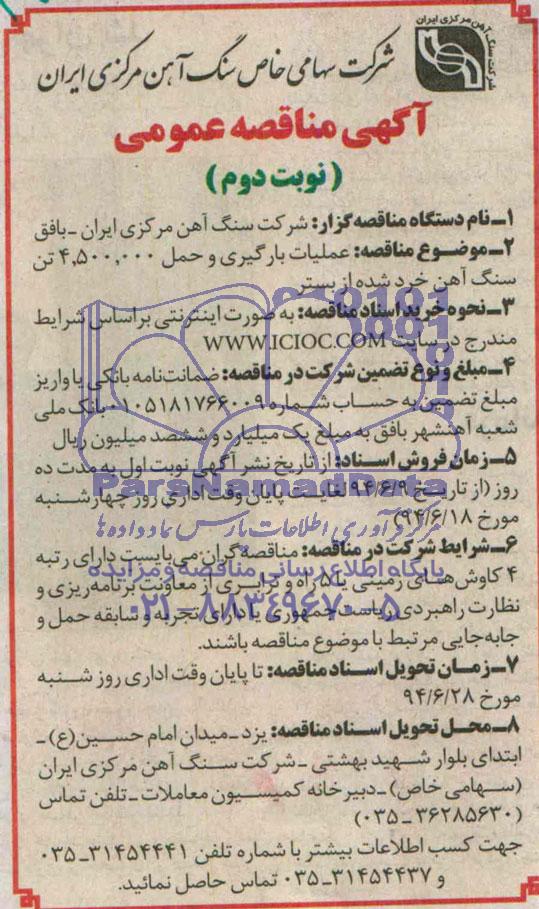 سنگ آهن مرکزی ایران
شرکت سهامی خاص سنگ آهن مرکزی ایران
آگهی مناقصه عمومی
(نوبت دوم)
۱ـ نام دستگاه مناقصه گزار: شرکت سنگ آهن مرکزی ایران ـ بافق
۲ـ موضـوع مناقصه: عملیات بارگیری و حمل ۴,۵۰۰,۰۰۰ تن
سنگ آهن خرد شده از بستر
۳ـ نحوه خرید اسناد مناقصه: به صورت اینترنتی براساس شرایط
مندرج در سایت WWW.ICIOC.COM
۴ـ مبلغ و نوع تضمین شرکت در مناقصه: ضمانت‌نامه بانکی یا واریز
مبلغ تضمین به حساب شـماره ۰۱۰۵۱۸۱۷۶۶۰۰۹ بانک ملی
شعبه آهنشهر بافق به مبلغ یک میلیارد و ششصد میلیون ریال
۵ـ زمان فروش اسـناد: از تاریخ نشر آگهی نوبت اول به مدت ده
روز (از تاریـخ ۹۴/۶/۹ لغایت پایان وقت اداری روز چهارشـنبه
مورخ ۹۴/۶/۱۸)
۶ـ شرایط شرکت در مناقصه: مناقصه‌گران می‌بایست دارای رتبه
۴ کاوش‌هـای زمینی یا ۵ راه و ترابـری از معاونت برنامه‌ریزی و
نظارت راهبردی ریاست جمهوری یا دارای تجربه و سابقه حمل و
جابه‌جایی مرتبط با موضوع مناقصه باشند.
۷ـ زمـان تحویل اسـناد مناقصه: تا پایان وقت اداری روز شـنبه
مورخ ۹۴/۶/۲۸
۸ـ محـل تحویل اسـناد مناقصه: یزد ـ میدان امام حسـین(ع) ـ
ابتدای بلوار شـهید بهشتی ـ شرکت سـنگ آهن مرکزی ایران
(سـهامی خاص) ـ دبیرخانه کمیسـیون معاملات ـ تلفن تماس
(۰۳۵ ـ ۳۶۲۸۵۶۳۰)
جهت کسب اطلاعات بیشتر با شماره تلفن ۳۱۴۵۴۴۴۱ـ۰۳۵
و ۳۱۴۵۴۴۳۷ـ۰۳۵ تماس حاصل نمائید.
ParsNamadData
مرکز فرآوری اطلاعات پارس نماد داده‌ها
پایگاه اطلاع رسانی مناقصه و مزایده
۰۲۱-۸۸۳۴۹۶۷۰-۵